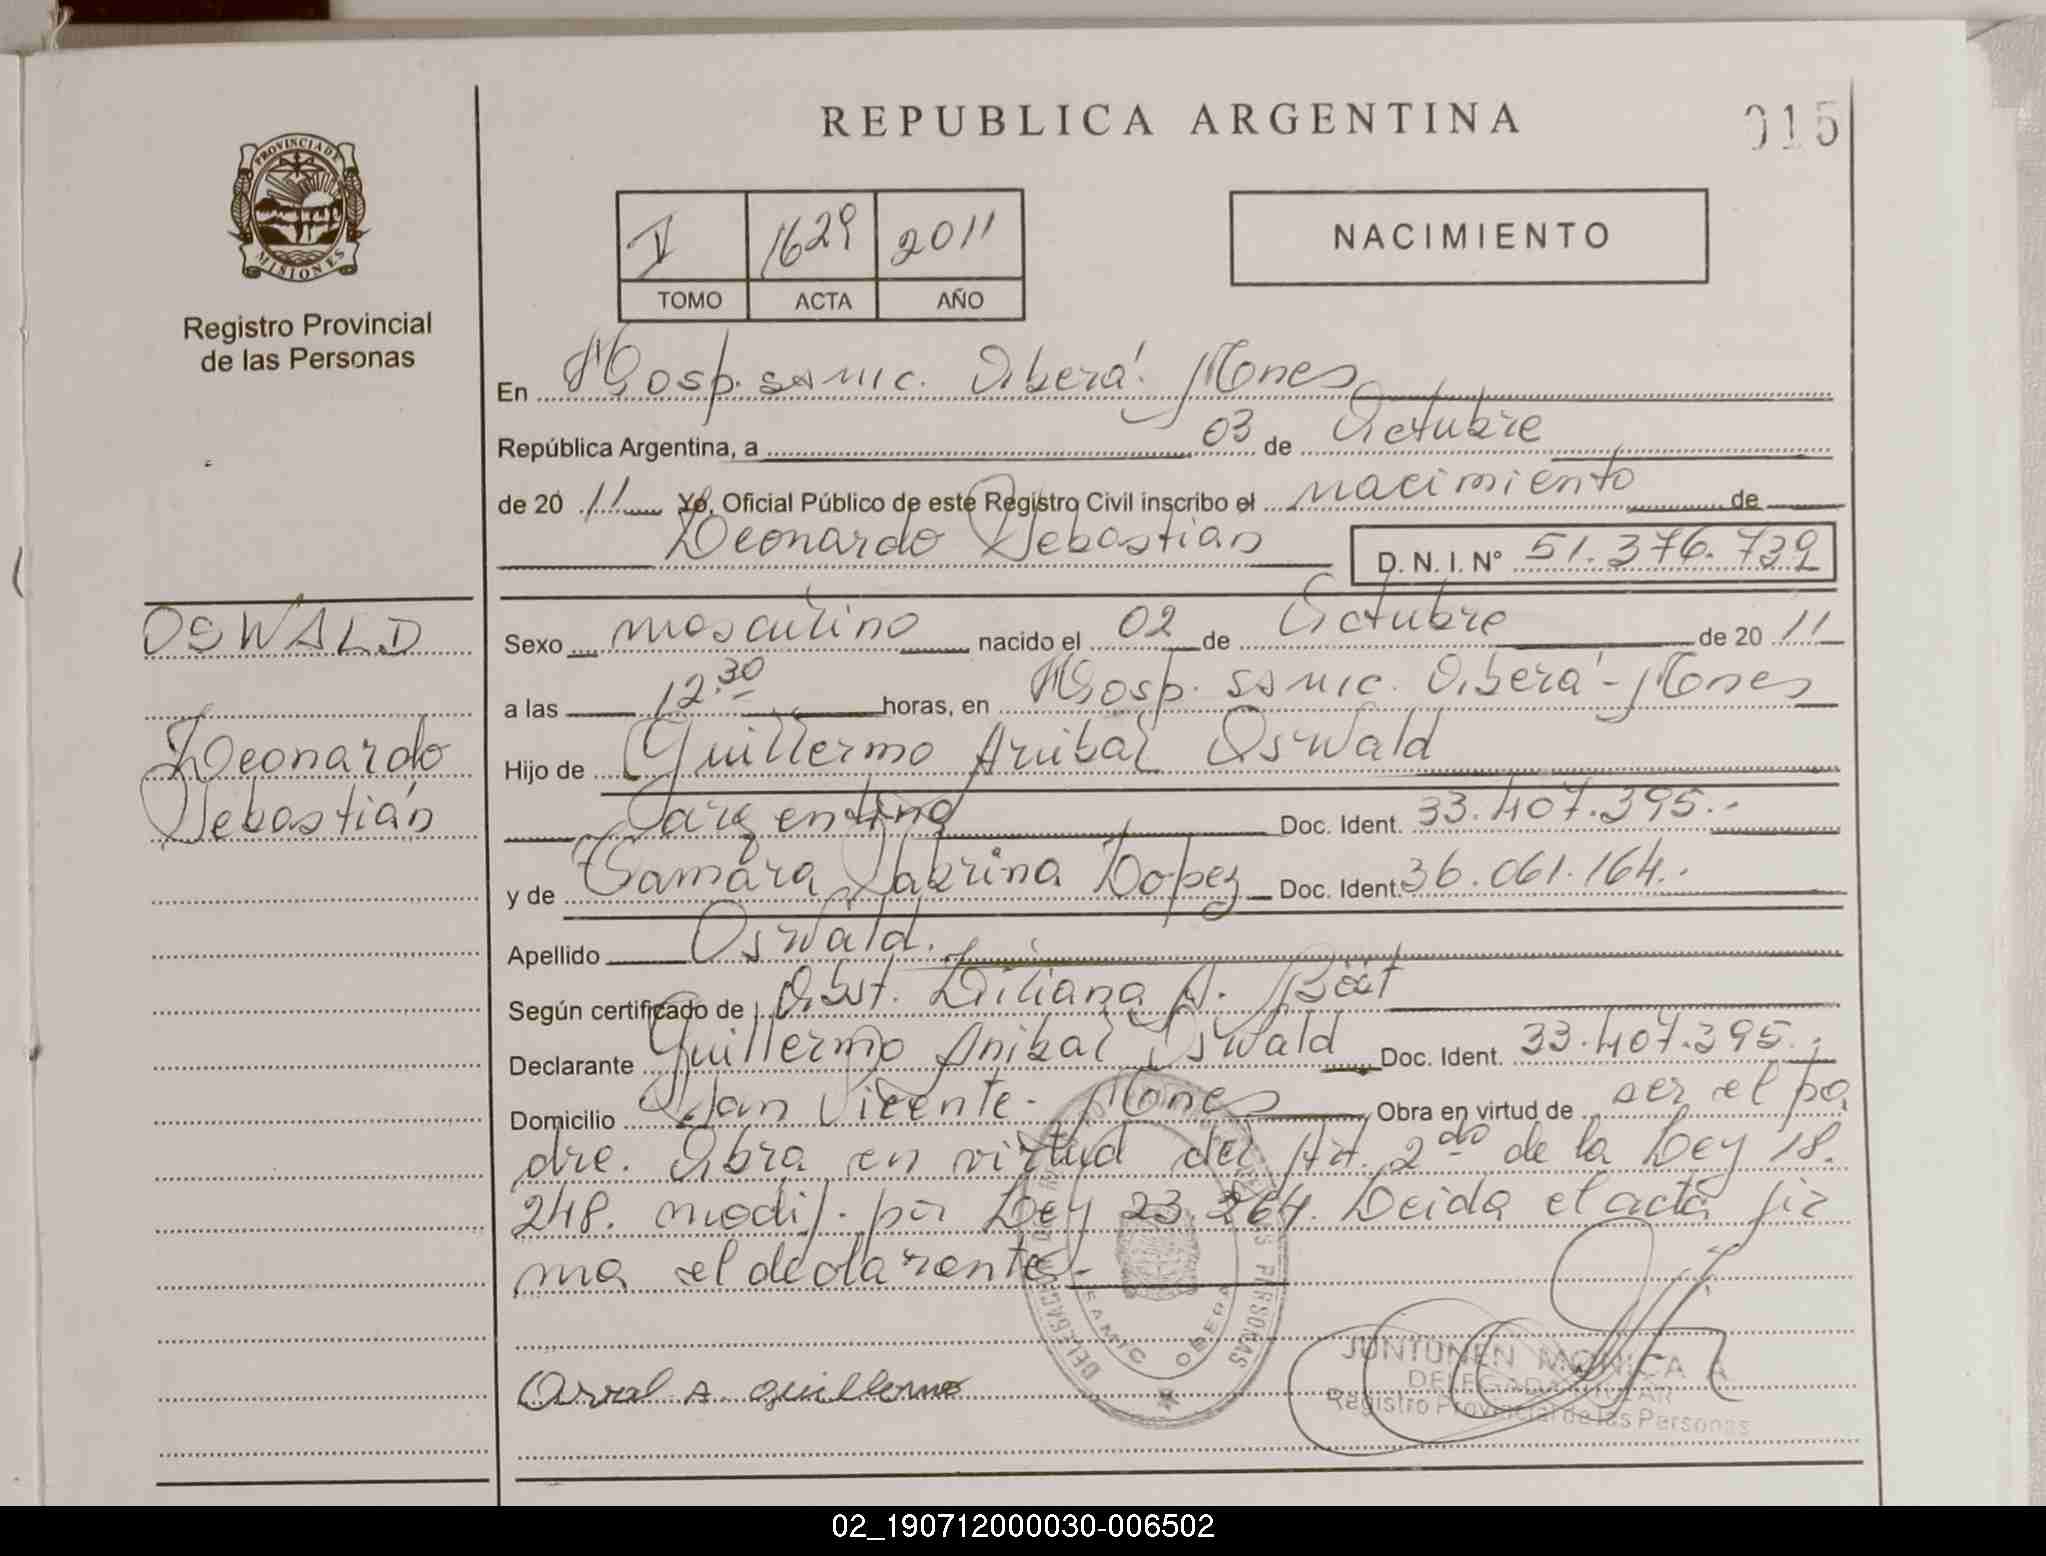 REPUBLICA ARGENTINA
015
PROVINCIA DE
MISIONES
Registro Provincial
de las Personas
V 1629 2011
TOMO ACTA AÑO
NACIMIENTO
En Hosp. samic. Oberá. Mones
República Argentina, a 03 de Octubre
de 20 11 Yo, Oficial Público de este Registro Civil inscribo el nacimiento de
Leonardo Sebastián
D. N. I. Nº 51.376.739
OSWALD
Leonardo
Sebastián
Sexo masculino nacido el 02 de Octubre de 20 11
a las 12.30 horas, en Hosp. samic. Oberá - Mones
Hijo de Guillermo Anibal Oswald
argentino Doc. Ident. 33.407.395.-
y de Tamara Sabrina Lopez Doc. Ident. 36.061.164.-
Apellido Oswald.
Según certificado de Obst. Liliana A.
Declarante Guillermo Anibal Oswald Doc. Ident. 33.407.395.-
Domicilio San Vicente - Mones Obra en virtud de ser el pa
dre. Obra en virtud del Art. 2do de la Ley 18.
248. modif. por Ley 23.264. Leida el acta fir
ma el declarante.-
A. Guillermo
SAMIC OBERA
JUNTUNEN MONICA A
DELEGADA TITULAR
Registro Provincial de las Personas
02_190712000030-006502